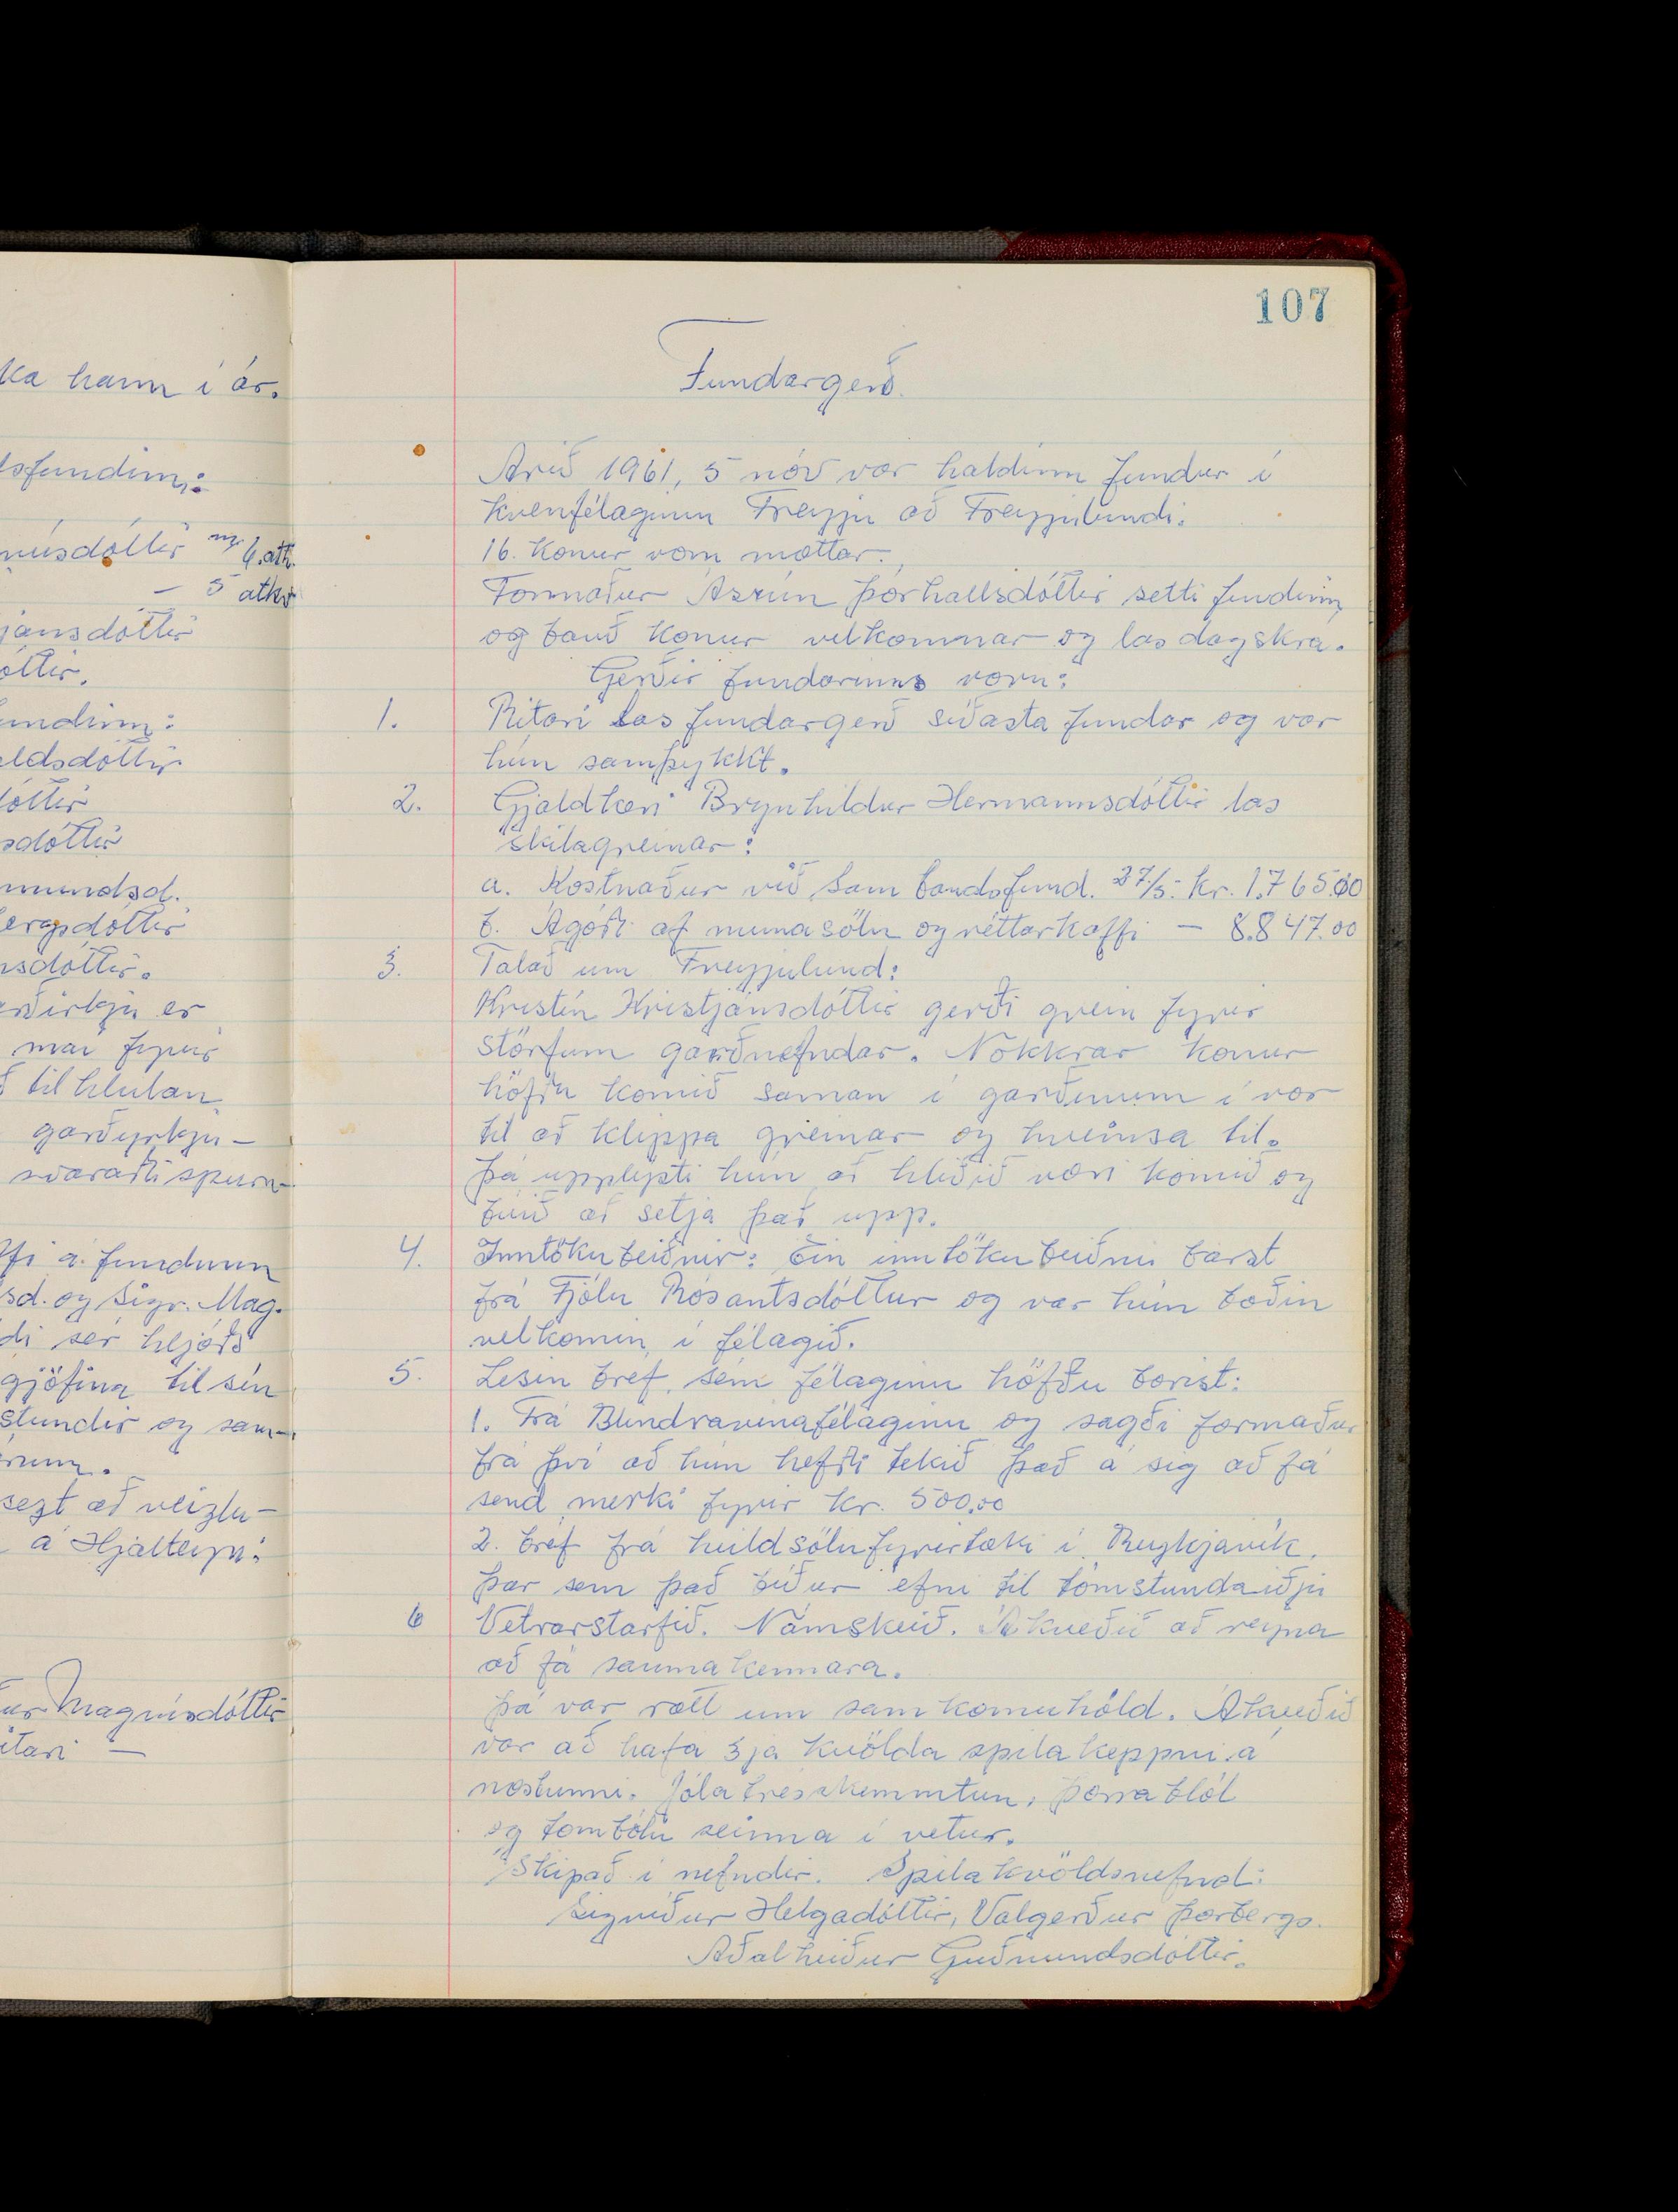 ka hann í ár.
sfundinn:
núsdóttir m. 6. atk.
— 5 atkv
jánsdóttir
óttir.
undinn:
ldsdóttir
dóttir
sdóttir
mundsd.
bergsdóttir
nsdóttir.
garðyrkju-
svaraði spurn-
ffi á fundinum
sd. og Sigr. Mag.
di sér hljóðs
gjöfina til sín
stundir og sam-
sezt að veizlu-
á Hjalteyri.
ur Magnúsdóttir
itari —
107
Fundargerð.
Árið 1961, 5 nóv var haldinn fundur í
kvenfélaginu Freyju að Freyjulundi.
16. konur voru mættar.
Formaður Ásrún Þórhallsdóttir setti fundinn,
og bauð konur velkomnar og las dagskrá.
Gerðir fundarinns voru:
1. Ritari las fundargerð síðasta fundar og var
hún samþykkt.
2. Gjaldkeri Brynhildur Hermannsdóttir las
skilagreinar:
a. Kostnaður við Sambandsfund. 27/5. kr. 1.765.00
b. Ágóði af munasölu og réttarkaffi — 8.847.00
3. Talað um Freyjulund:
Kristín Kristjánsdóttir gerði grein fyrir
störfum garðnefndar. Nokkrar konur
höfðu komið saman í garðinum í vor
til að klippa greinar og hreinsa til.
Þá upplýsti hún að hliðið væri komið og
búið að setja það upp.
4. Inntökubeiðnir: Ein inntökubeiðni barst
frá Fjólu Rósantsdóttur og var hún boðin
velkomin í félagið.
5. Lesin bréf, sem félaginu höfðu borist:
1. Frá Blindravinafélaginu og sagði formaður
frá því að hún hefði tekið það á sig að fá
send merki fyrir kr. 500.00
2. bréf frá heildsölufyrirtæki í Reykjavík,
þar sem það bíður efni til tómstundaiðju
6 Vetrarstarfið. Námskeið. Ákveðið að reyna
að fá saumakennara.
Þá var rætt um samkomuhöld. Ákveðið
var að hafa 3ja kvölda spilakeppni á
næstunni. Jólatrésskemmtun, Þorrablót
og tombólu seinna í vetur.
Skipað í nefndir. Spilakvöldsnefnd:
Sigríður Helgadóttir, Valgerður Þorbergs.
Aðalheiður Guðmundsdóttir.